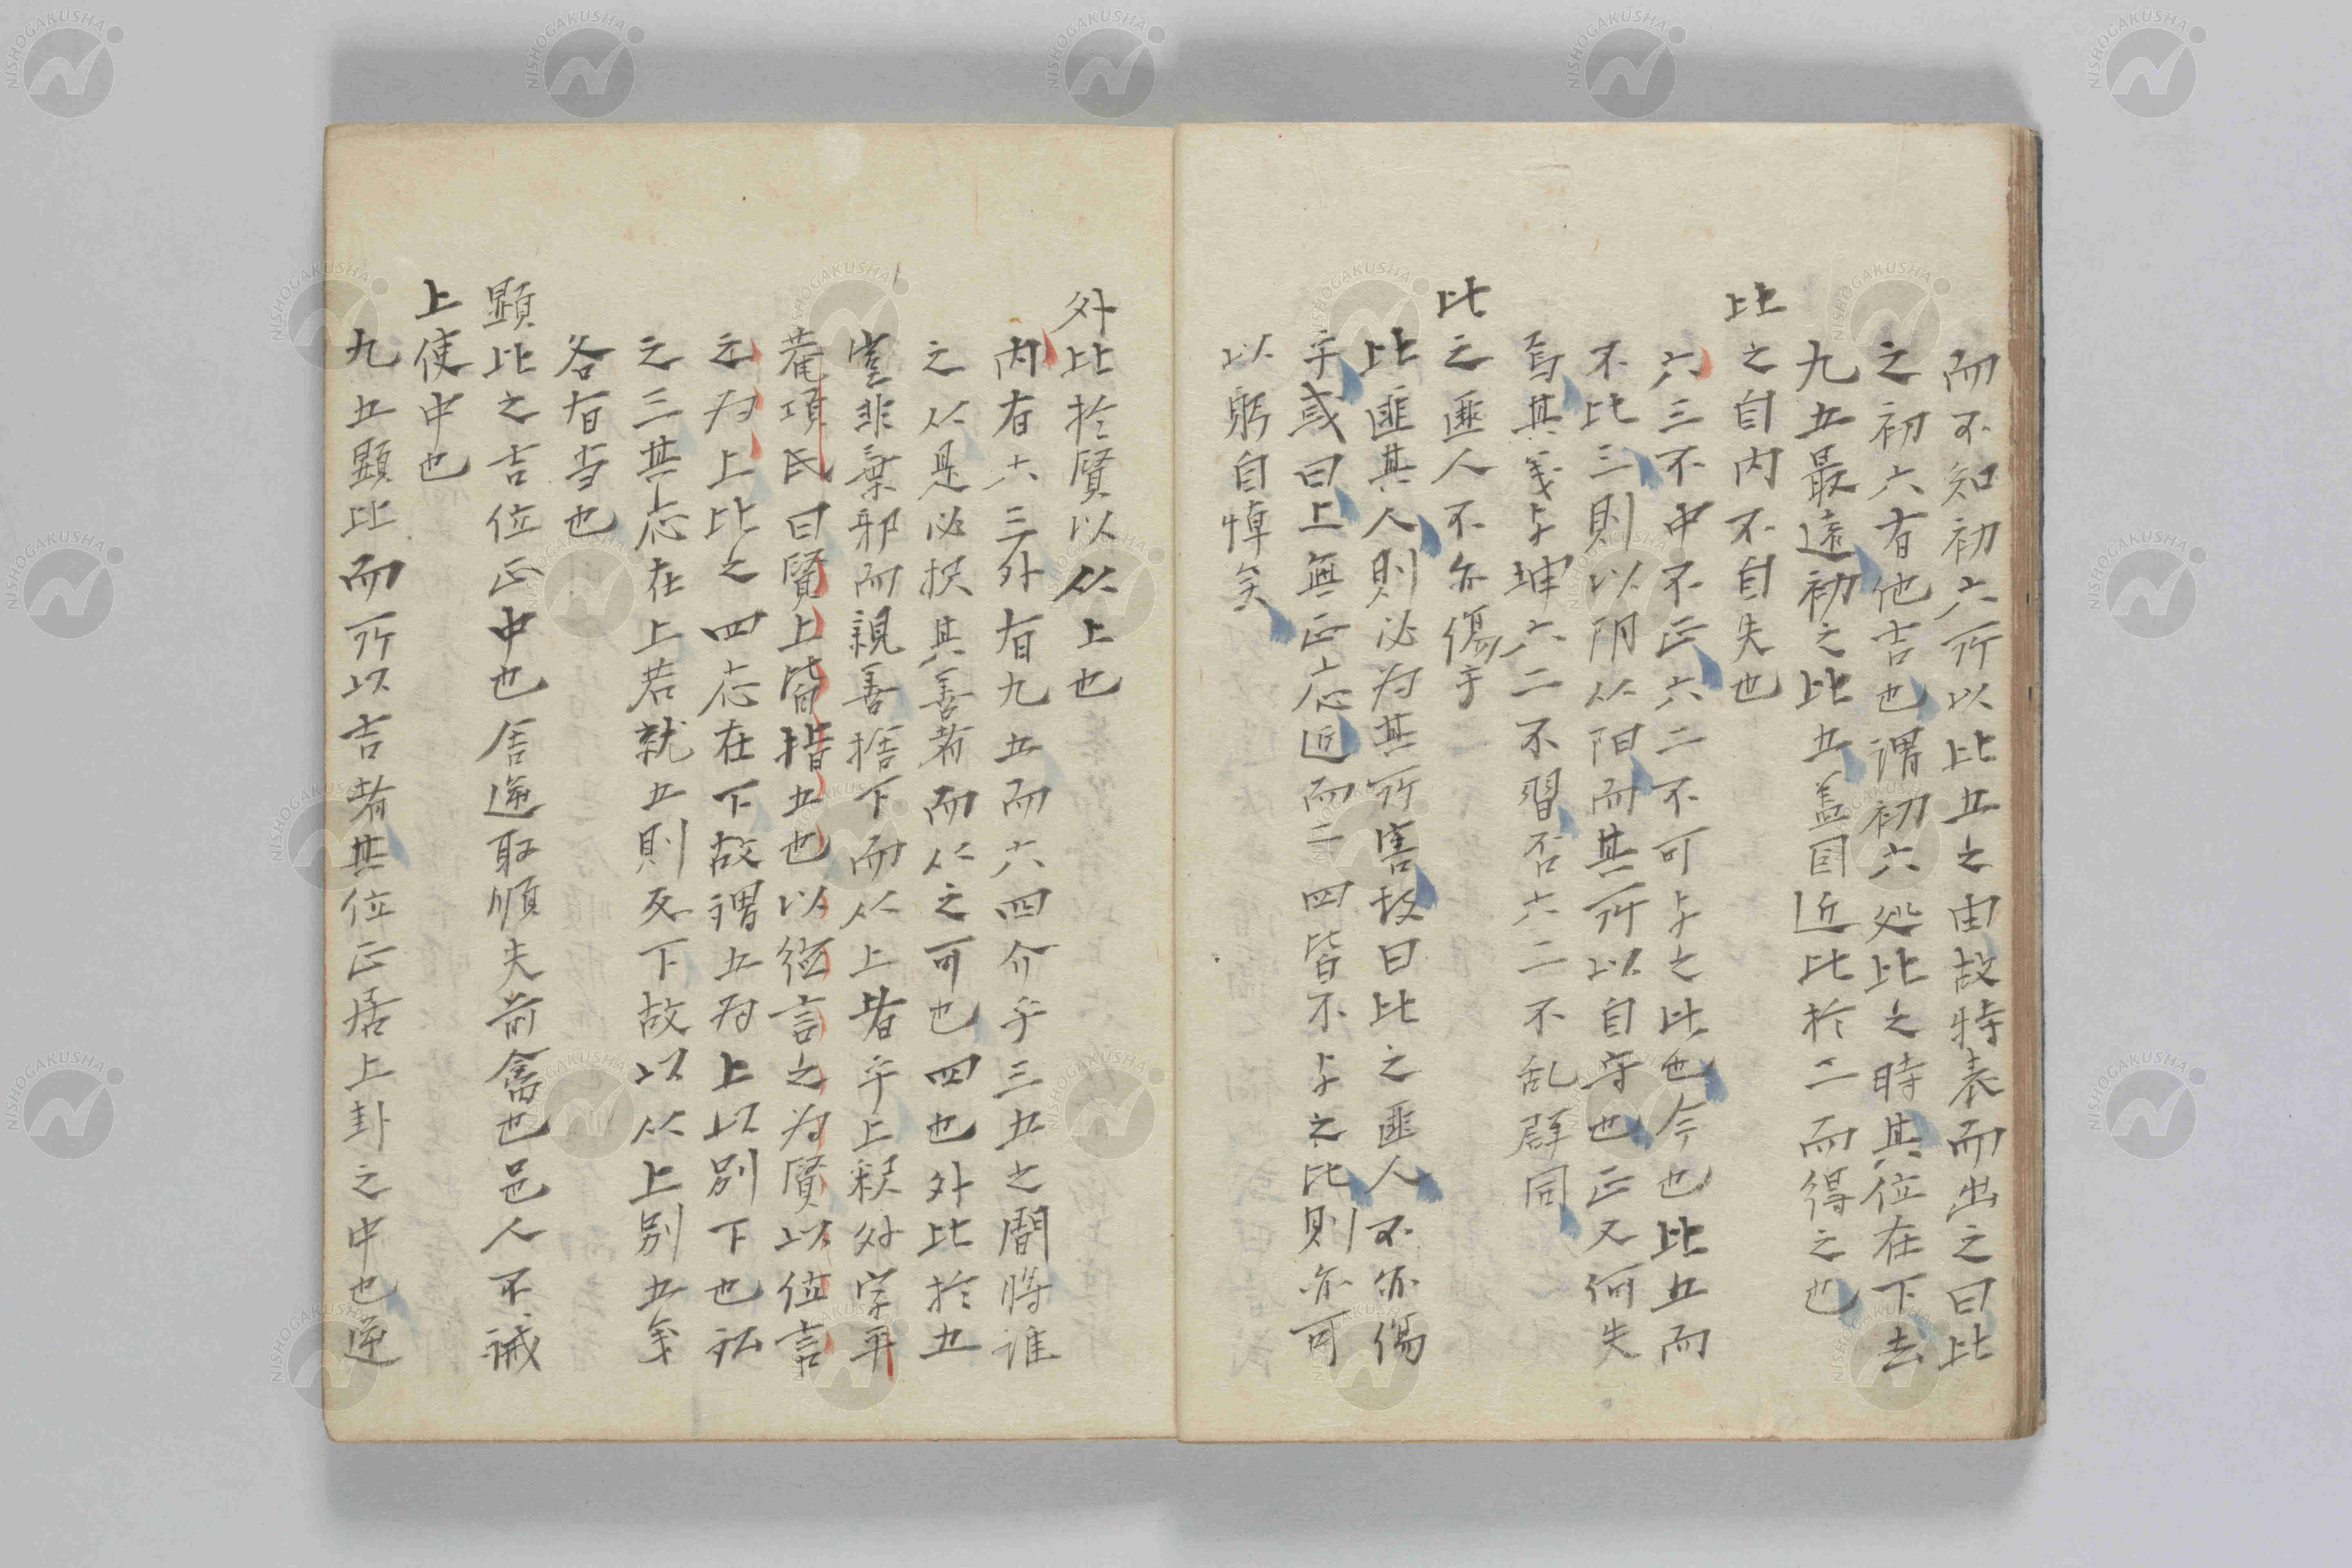 而不知初六所以比五之由故特表而出之曰比
之初六有他吉也謂初六処比之時其位在下去
九五最遠初之比五盖因近比於二而得之也
比之自内不自失也
六三不中不正六二不可与之比也今也比五而
不比三則以阴从阳而其所以自守也正又何失
焉其義与坤六二不習否六二不乱群同
比之匪人不亦傷乎
比匪其人則必为其所害故曰比之匪人不亦傷
乎或曰上無正応近而二四皆不与之比則亦可
以躬自悼矣
外比於賢以从上也
内有六三外有九五而六四介乎三五之間將誰
之从是必択其善者而从之可也四也外比於五
豈非棄邪而親善捨下而从上者乎上釈外字平
菴項氏曰賢上皆指五也以徳言之为賢以位言
之为上比之四志在下故謂五为上以別下也
之三其志在上若就五則反下故以从上別五義
各有当也
顕比之吉位正中也舍逆取順失前禽也邑人不誡
上使中也
九五顕比而所以吉者其位正居上卦之中也逆
NISHOGAKUSHA